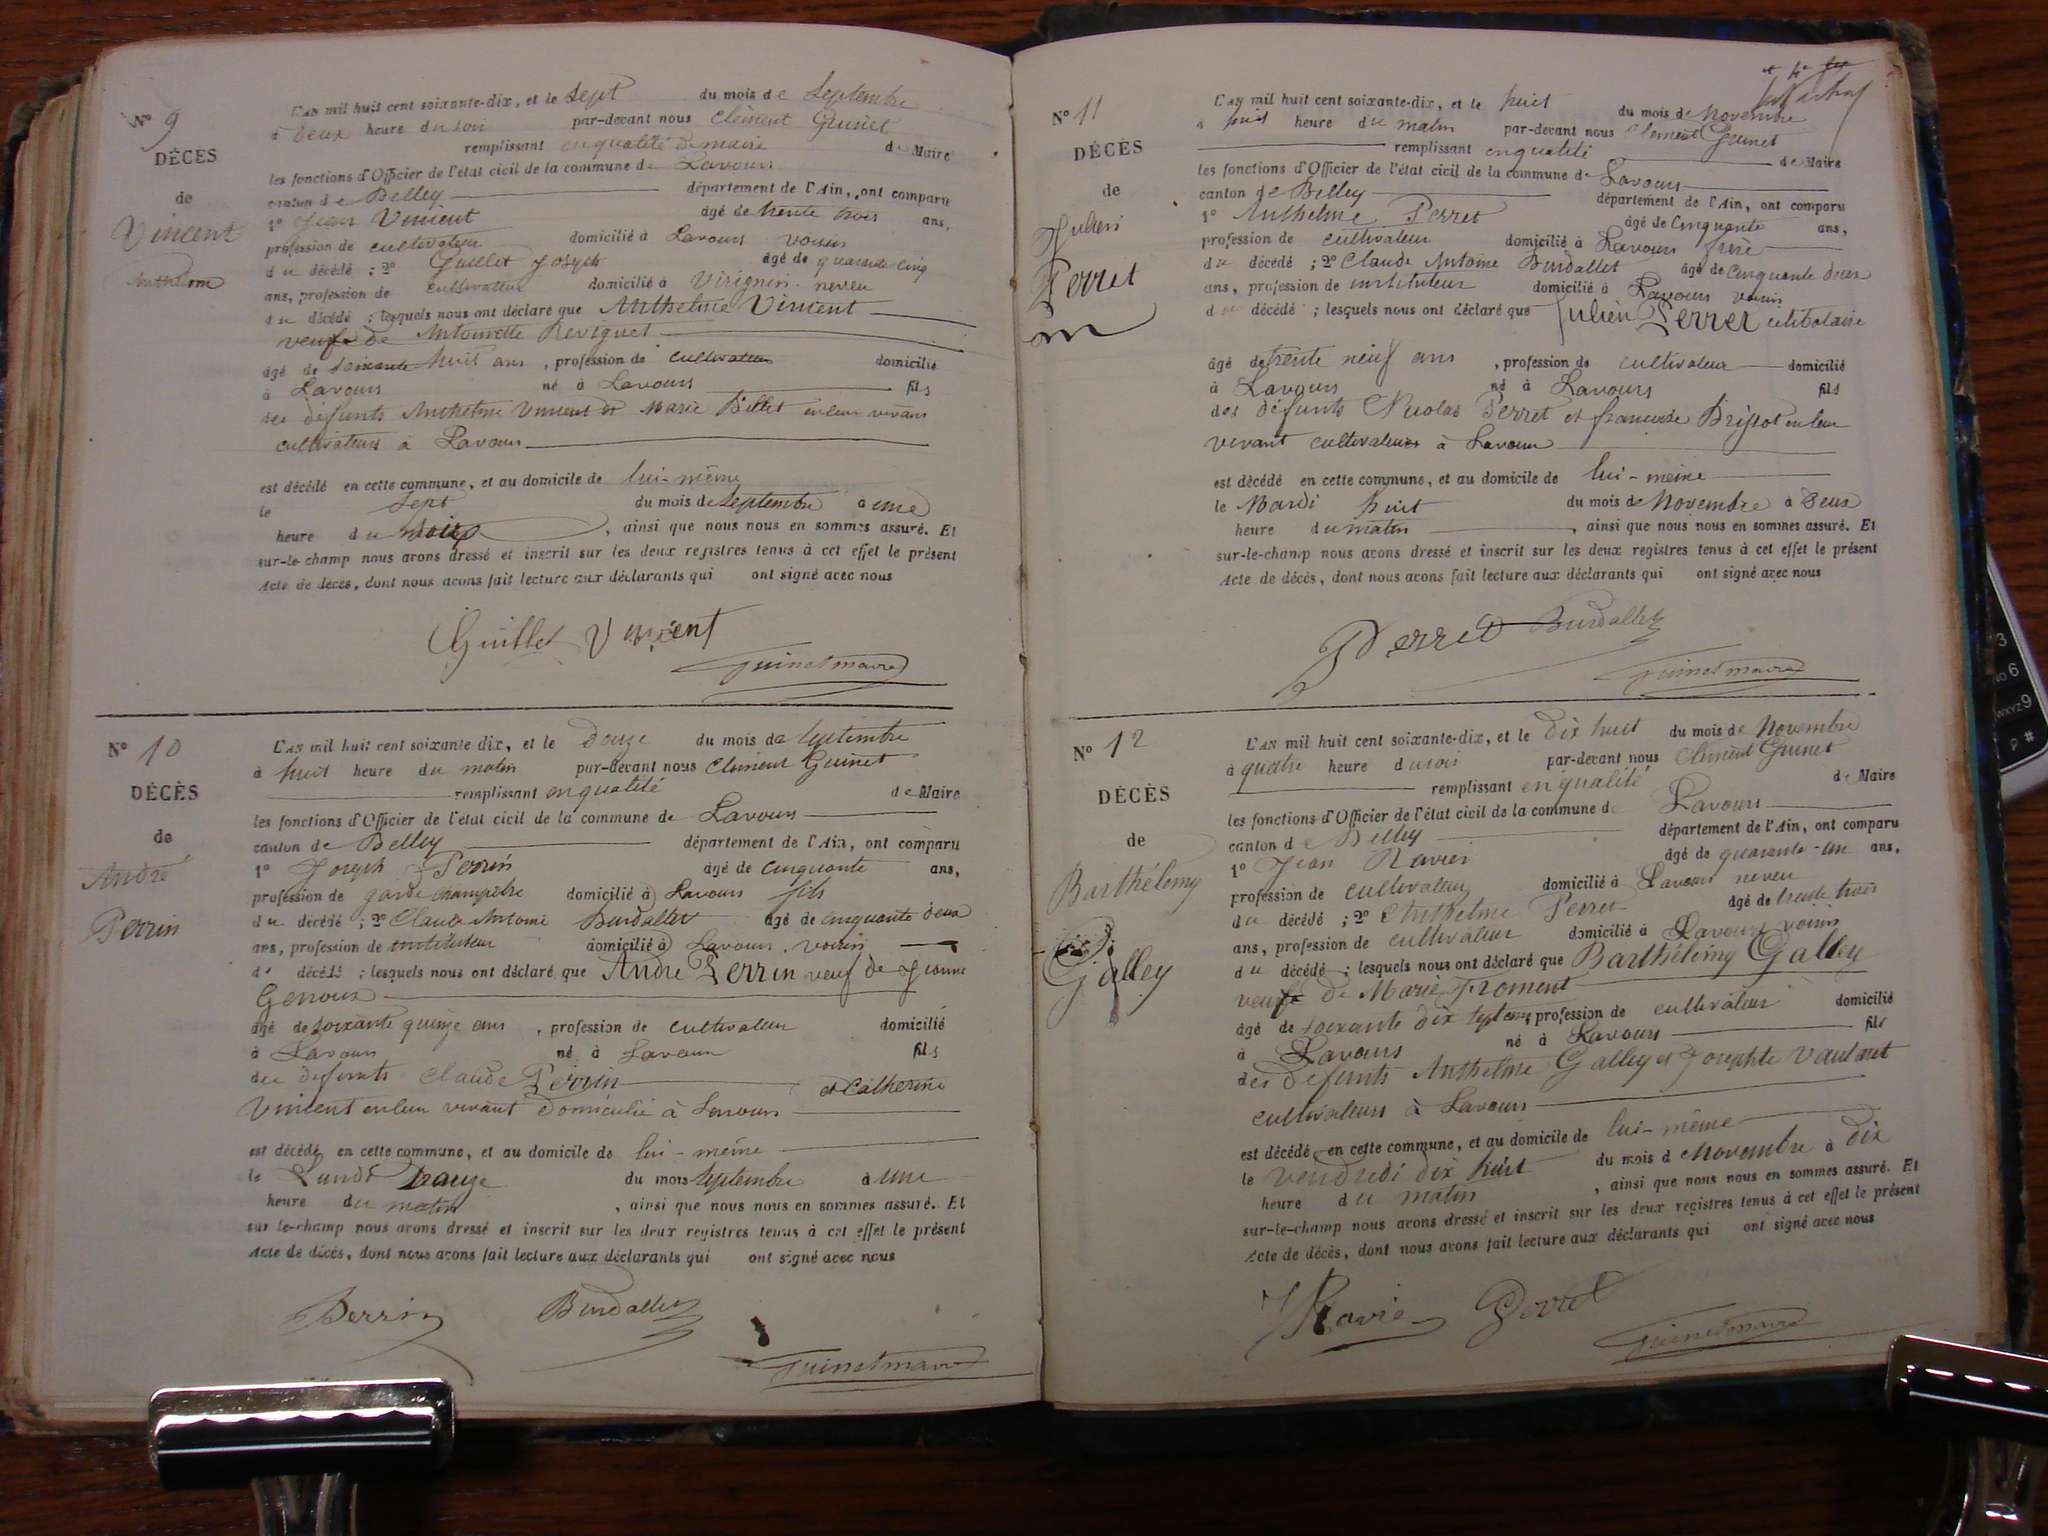 N° 9
DÉCÈS
de
Vincent
Anthelme
L'AN mil huit cent soixante-dix, et le sept du mois de Septembre
à deux heure du soir par-devant nous Clément Guinet
remplissant en qualité de maire de Maire
les fonctions d'Officier de l'état civil de la commune de Lavours
canton de Belley département de l'Ain, ont comparu
1° Jean Vincent âgé de trente trois ans,
profession de cultivateur domicilié à Lavours voisin
du décédé ; 2° Guillet Joseph âgé de quarante cinq
ans, profession de cultivateur domicilié à Virignin neveu
du décédé ; lesquels nous ont déclaré que Anthelme Vincent
veuf de Antoinette Reviguet
âgé de soixante huit ans , profession de cultivateur domicilié
à Lavours né à Lavours fils
des défunts Anthelme Vincent et Marie Billet en leur vivans
cultivateurs à Lavours
est décédé en cette commune, et au domicile de lui-même
le sept du mois de Septembre à une
heure du soir , ainsi que nous nous en sommes assuré. Et
sur-le-champ nous avons dressé et inscrit sur les deux registres tenus à cet effet le présent
Acte de décès, dont nous avons fait lecture aux déclarants qui ont signé avec nous
Guillet Vincent
Guinet maire
N° 10
DÉCÈS
de
André
Perrin
L'AN mil huit cent soixante dix, et le douze du mois de Septembre
à huit heure du matin par-devant nous Clément Guinet
remplissant en qualité de Maire
les fonctions d'Officier de l'état civil de la commune de Lavours
canton de Belley département de l'Ain, ont comparu
1° Joseph Perrin âgé de cinquante ans,
profession de garde champêtre domicilié à Lavours fils
du décédé ; 2° Claude Antoine Burdallet âgé de cinquante deux
ans, profession de instituteur domicilié à Lavours voisin
d décédé ; lesquels nous ont déclaré que André Perrin veuf de Jeanne
Genoux
âgé de soixante quinze ans , profession de cultivateur domicilié
à Lavours né à Lavours fils
des défunts Claude Perrin et Catherine
Vincent en leur vivant domicilié à Lavours
est décédé en cette commune, et au domicile de lui-même
le Lundi Douze du mois Septembre à une
heure du matin , ainsi que nous nous en sommes assuré. Et
sur le-champ nous avons dressé et inscrit sur les deux registres tenus à cet effet le présent
Acte de décès, dont nous avons fait lecture aux déclarants qui ont signé avec nous
Perrin Burdallet
Guinet maire
N° 11
DÉCÈS
de
Julien
Perret
L'AN mil huit cent soixante-dix, et le huit du mois de Novembre
à huit heure du matin par-devant nous Clément Guinet
remplissant en qualité de Maire
les fonctions d'Officier de l'état civil de la commune de Lavours
canton de Belley département de l'Ain, ont comparu
1° Anthelme Perret âgé de Cinquante ans,
profession de cultivateur domicilié à Lavours frère
du décédé ; 2° Claude Antoine Burdallet âgé de cinquante deux
ans, profession de instituteur domicilié à Lavours voisin
du décédé ; lesquels nous ont déclaré que Julien Perret célibataire
âgé de trente neuf ans , profession de cultivateur domicilié
à Lavours né à Lavours fils
des défunts Nicolas Perret et françoise Brissot en leur
vivant cultivateurs à Lavours
est décédé en cette commune, et au domicile de lui-meme
le Mardi huit du mois de Novembre à Deux
heure du matin , ainsi que nous nous en sommes assuré. Et
sur-le-champ nous avons dressé et inscrit sur les deux registres tenus à cet effet le présent
Acte de décès, dont nous avons fait lecture aux déclarants qui ont signé avec nous
Perret Burdallet
Guinet maire
N° 12
DÉCÈS
de
Barthélemy
Galley
L'AN mil huit cent soixante-dix, et le dix huit du mois de Novembre
à quatre heure du soir par-devant nous Clément Guinet
remplissant en qualité de Maire
les fonctions d'Officier de l'état civil de la commune d Lavours
canton de Belley département de l'Ain, ont comparu
1° Jean Ravier âgé de quarante-un ans,
profession de cultivateur domicilié à Lavours neveu
du décédé ; 2° Anthelme Perret âgé de trente trois
ans, profession de cultivateur domicilié à Lavours voisin
du décédé ; lesquels nous ont déclaré que Barthélémy Galley
veuf de Marie Froment
âgé de soixante dix sept ans, profession de cultivateur domicilié
à Lavours né à Lavours fils
des défunts Anthelme Galley et Josephte Vaulant
cultivateurs à Lavours
est décédé en cette commune, et au domicile de lui-même
le vendredi dix huit du mois d Novembre à dix
heure du matin , ainsi que nous nous en sommes assuré. Et
sur-le-champ nous avons dressé et inscrit sur les deux registres tenus à cet effet le présent
Acte de décès, dont nous avons fait lecture aux déclarants qui ont signé avec nous
J Ravie Perret
Guinet maire
3
6
wxyz9
#